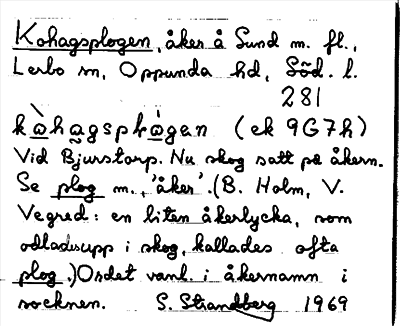 Kohagsplogen, åker å Sund m. fl.,
Lerbo sn, Oppunda hd, Söd. l.
281
kòhagsplògen (ek 9G7h)
Vid Bjurstorp. Nu skog satt på åkern.
Se plog m., 'åker'. (B. Holm, V.
Vegred: en liten åkerlycka, som
odlades upp i skog, kallades ofta
plog.) Ordet vanl. i åkernamn i
socknen. S. Strandberg 1969